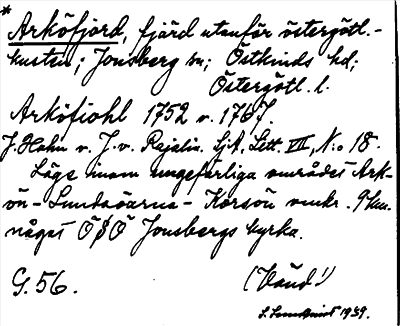 * Arköfjord, fjärd utanför östergötl.-
kusten; Jonsberg sn; Östkinds hd;
Östergötl. l.
Arköfiohl 1752 v. 1767.
J. Hahn v. J. v. Rajalin. SjA, Lett. VII, N:o 18.
Läge inom ungefärliga området Ark-
ön - Lundaöarna - Korsön omkr. 9 km.
något Ö§Ö Jonsbergs kyrka.
G. 56. (Vänd!)
1939.